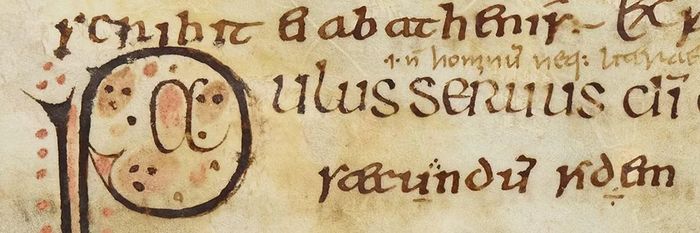 scribit ei ab athenis.~ Ex
.i. n̄ hominū neq:
Paulus seruus dī
secundū fidem